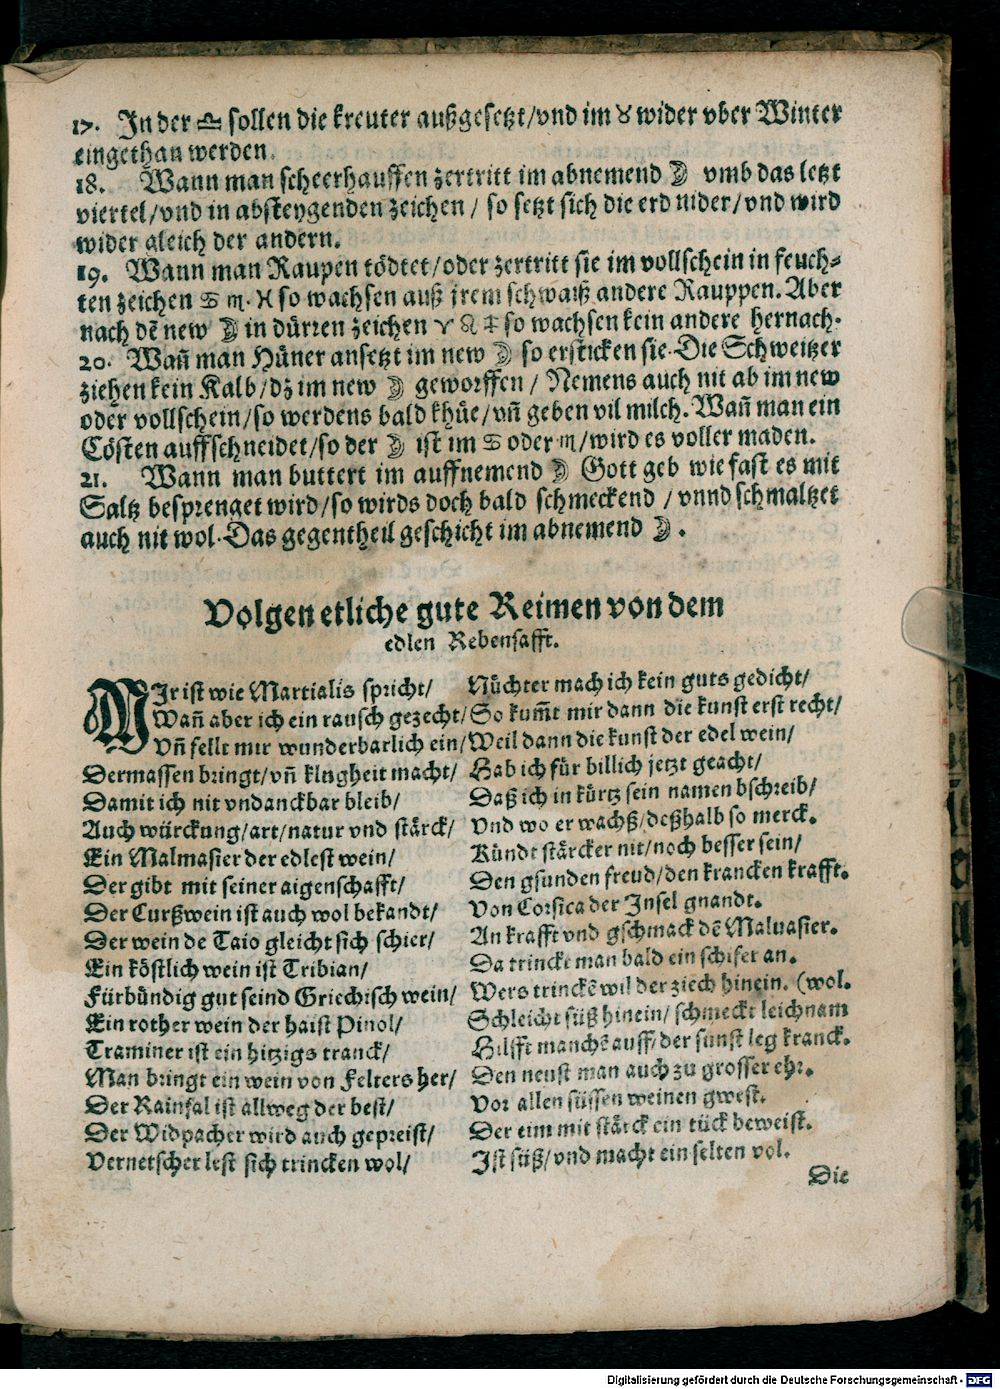 17. In der ♎ sollen die kreuter außgesetzt/vnd im ♉ wider vber Winter
eingethan werden.
18. Wann man scheerhauffen zertritt im abnemend ☽ vmb das letzt
viertel/vnd in absteygenden zeichen / so setzt sich die erd nider/vnd wird
wider gleich der andern.
19. Wann man Raupen tödtet/oder zertritt sie im vollschein in feuch-
ten zeichen ♋ ♏. ♓ so wachsen auß jrem schwaiß andere Rauppen. Aber
nach dē new ☽ in dürren zeichen ♈ ♌ ♐ so wachsen kein andere hernach.
20. Wañ man Hüner ansetzt im new ☽ so ersticken sie. Die Schweitzer
ziehen kein Kalb/dz im new ☽ geworffen / Nemens auch nit ab im new
oder vollschein/so werdens bald khüe/vñ geben vil milch. Wañ man ein
Cösten auffschneidet/so der ☽ ist im ♋ oder ♏/wird es voller maden.
21. Wann man buttert im auffnemend ☽ Gott geb wie fast es mit
Saltz besprenget wird/so wirds doch bald schmeckend / vnnd schmaltzet
auch nit wol. Das gegentheil geschicht im abnemend ☽.
Volgen etliche gute Reimen von dem
edlen Rebensafft.
MIr ist wie Martialis spricht/
Wañ aber ich ein rausch gezecht/
Vñ fellt mir wunderbarlich ein/
Dermassen bringt/vñ klugheit macht/
Damit ich nit vndanckbar bleib/
Auch würckung/art/natur vnd stärck/
Ein Malmasier der edlest wein/
Der gibt mit seiner aigenschafft/
Der Curßwein ist auch wol bekandt/
Der wein de Taio gleicht sich schier/
Ein köstlich wein ist Tribian/
Fürbündig gut seind Griechisch wein/
Ein rother wein der haist Pinol/
Traminer ist ein hitzigs tranck/
Man bringt ein wein von Felters her/
Der Rainfal ist allweg der best/
Der Widpacher wird auch gepreist/
Vernetscher lest sich trincken wol/
Nüchter mach ich kein guts gedicht/
So kum̄t mir dann die kunst erst recht/
Weil dann die kunst der edel wein/
Hab ich für billich jetzt geacht/
Daß ich in kürtz sein namen bschreib/
Vnd wo er wachß/deßhalb so merck.
Kündt stärcker nit/noch besser sein/
Den gsunden freud/den krancken krafft.
Von Corsica der Insel gnandt.
An krafft vnd gschmack dē Maluasier.
Da trinckt man bald ein schifer an.
Wers trinckē wil der ziech hinein. (wol.
Schleicht süß hinein/ schmeckt leichnam
Hilfft manchē auff/der sunst leg kranck.
Den neust man auch zu grosser ehr.
Vor allen süssen weinen gwest.
Der eim mit stärck ein tück beweist.
Ist süß/vnd macht ein selten vol.
Die
Digitalisierung gefördert durch die Deutsche Forschungsgemeinschaft - DFG